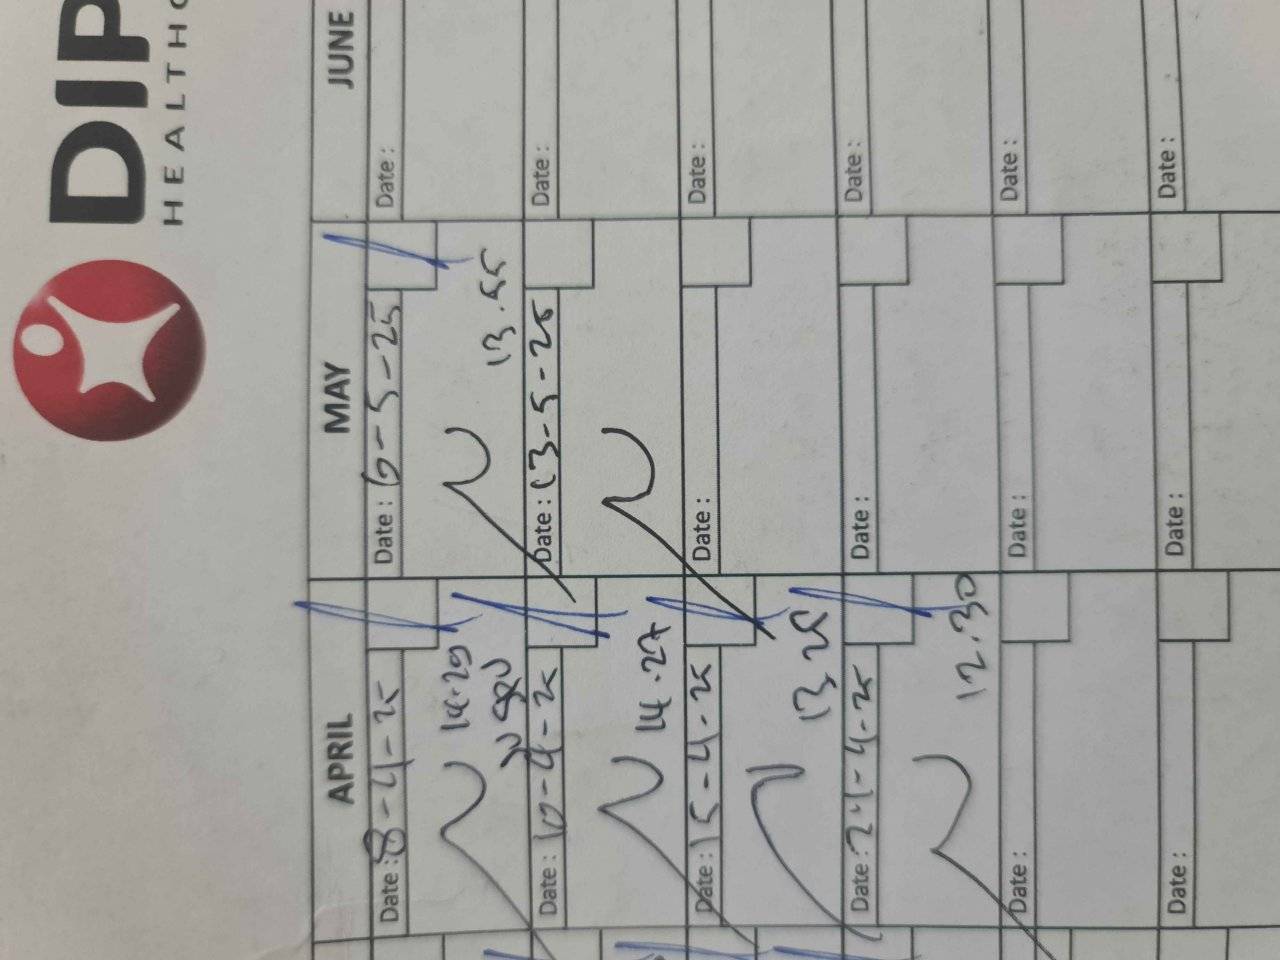 DIP
HEALTHC
APRIL
MAY
JUNE
Date : 8-4-25
Date : 6-5-25
Date :
14.29
13.55
Date : 10-4-25
Date : 13-5-25
Date :
14.27
Date : 15-4-25
Date :
Date :
13.25
Date : 24-4-25
Date :
Date :
12.30
Date :
Date :
Date :
Date :
Date :
Date :